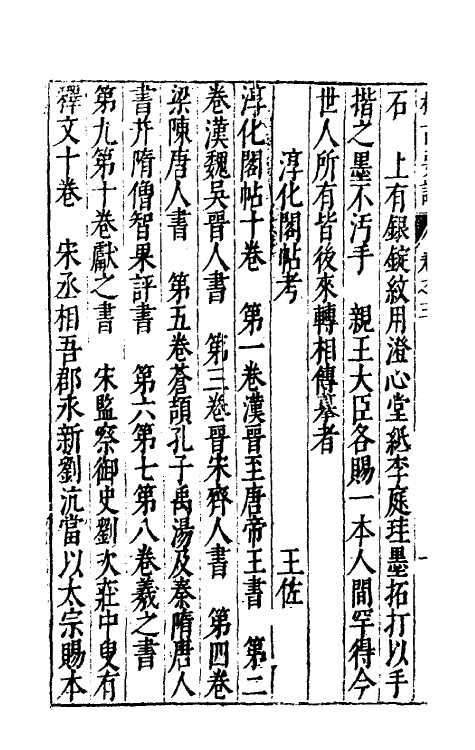 石　上有銀錠紋用澄心堂紙李庭珪墨拓打以手
揩之墨不汚手　親王大臣各賜一本人間罕得今
世人所有皆後來轉相傳摹者
淳化閣帖考　王佐
淳化閣帖十卷　第一卷漢晉至唐帝王書　第二
卷漢魏吳晉人書　第三卷晉宋齊人書　第四卷
梁陳唐人書　第五卷蒼頡孔子禹湯及秦隋唐人
書并隋僧智果評書　第六第七第八卷羲之書
第九第十卷獻之書　宋監察御史劉次莊中叟有
釋文十卷　宋丞相吾郡永新劉沆當以太宗賜本